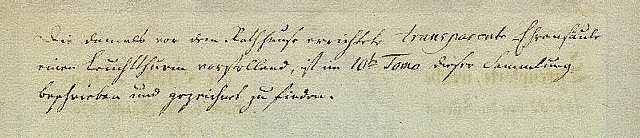 Die damals vor dem Rathhause errichtete transparente Ehrensäule
einen Leuchtthurm vorstellend, ist im 10ten Tomo dieser Sammlung
beschrieben und gezeichnet zu finden.